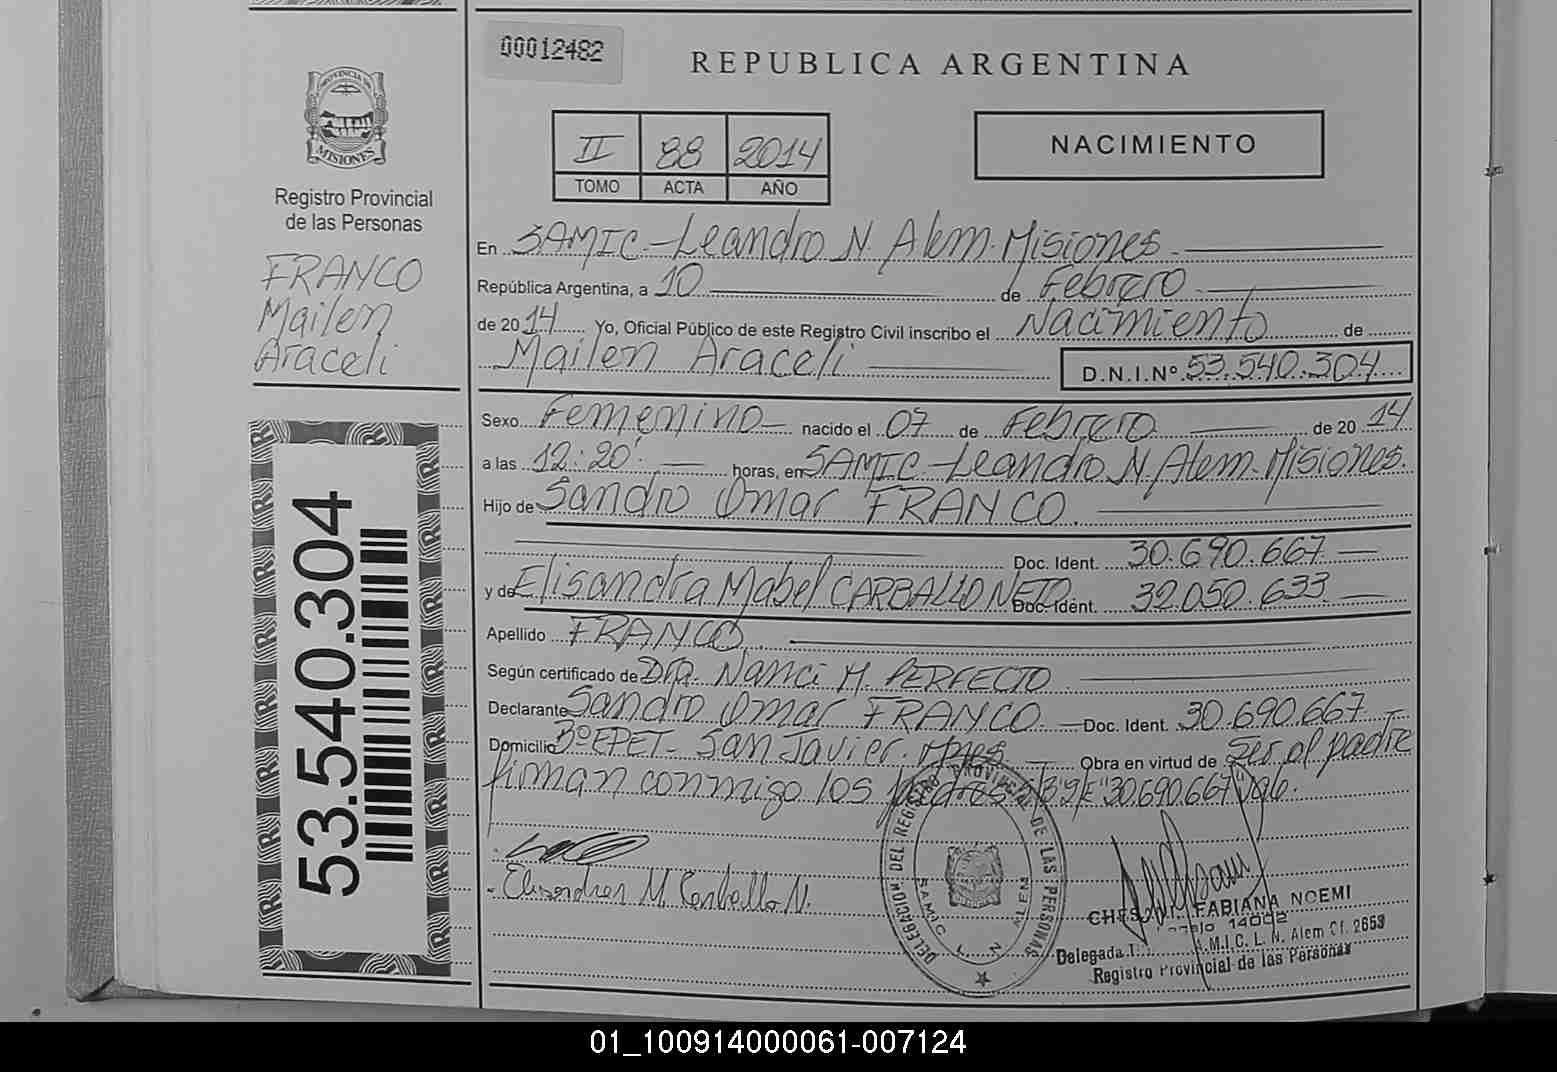 00012482
REPUBLICA ARGENTINA
PROVINCIA DE
MISIONES
Registro Provincial
de las Personas
FRANCO
Mailen
Araceli
II 88 2014
TOMO ACTA AÑO
NACIMIENTO
En SAMIC - Leandro N. Alem - Misiones
República Argentina, a 10 de Febrero
de 2014 Yo, Oficial Público de este Registro Civil inscribo el Nacimiento de
Mailen Araceli D.N.I.Nº 53.540.304
Sexo Femenino nacido el 07 de Febrero de 2014
a las 12:20' horas, en SAMIC - Leandro N. Alem - Misiones.
Hijo de Sandro Omar FRANCO
Doc. Ident. 30.690.667
y de Elisandra Mabel CARBALLO NETO Doc. Ident. 32.050.633
Apellido FRANCO
Según certificado de Dra. Nanci M. PERFECTO
Declarante Sandro Omar FRANCO Doc. Ident. 30.690.667
Domicilio Bº EPET - San Javier - Mnes Obra en virtud de Ser el padre
firman conmigo los padres S/B y/E "30.690.667" Vale.
53.540.304
Elisandra M. Carballo N.
DELEGACION DEL REGISTRO PROVINCIAL DE LAS PERSONAS
SAMIC L. N. ALEM
FABIANA NOEMI
14002
Delegada A.M.I.C. L. N. Alem Of. 2653
Registro Provincial de las Personas
01_100914000061-007124